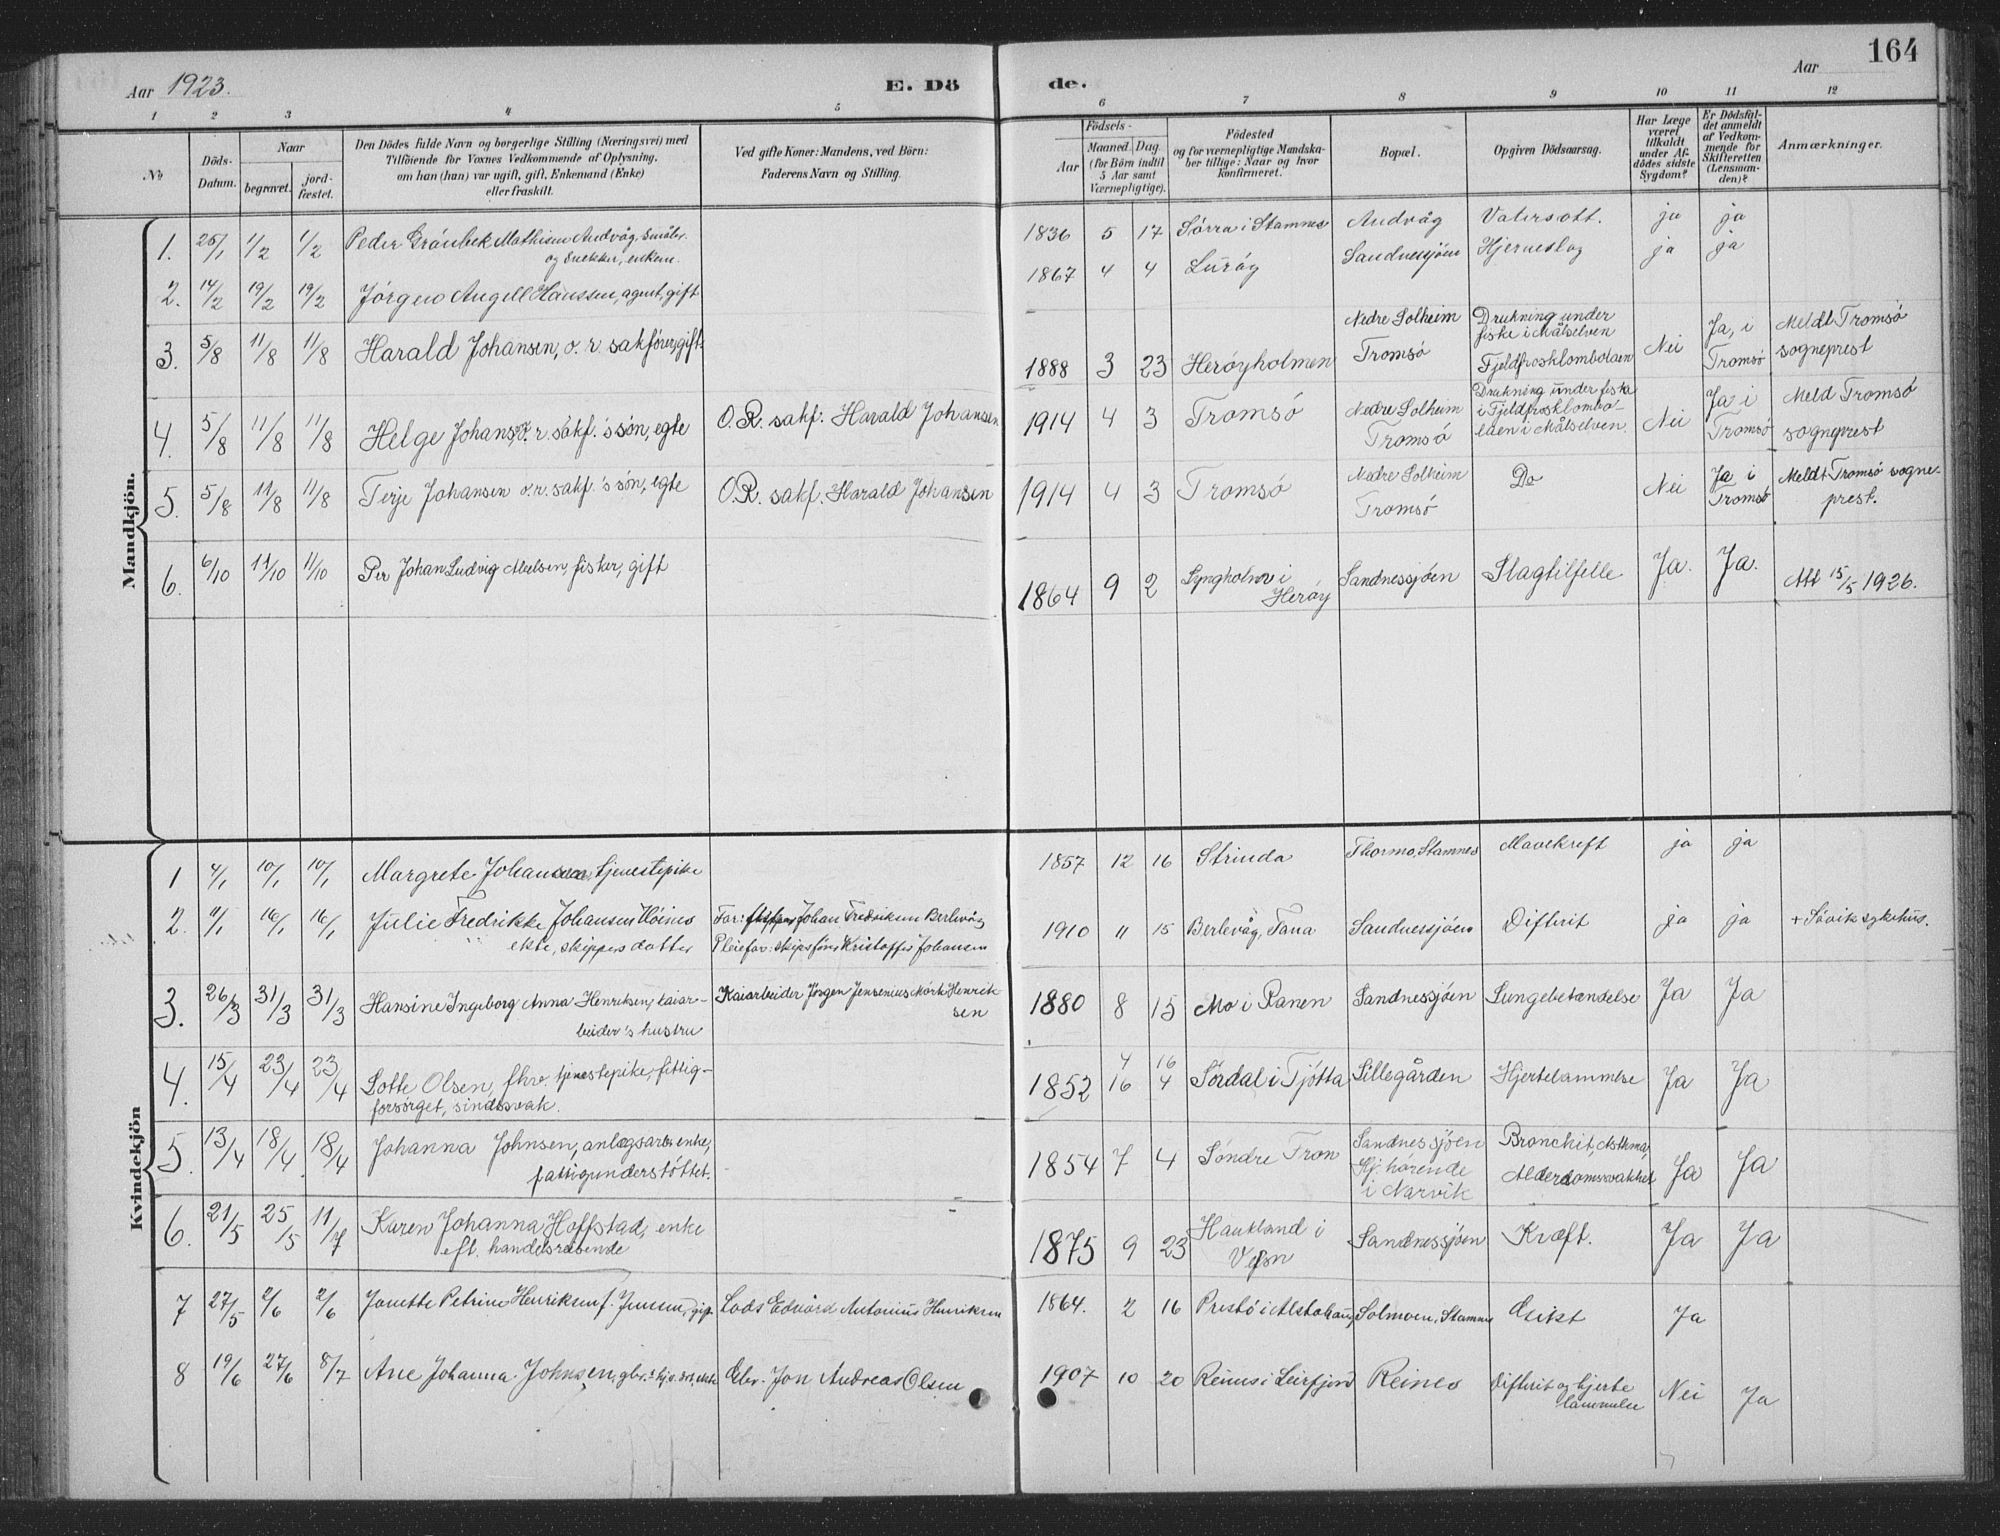 Aar 1923. E. Dö de. Aar 164
1 2 3 4 5 6 7 8 9 10 11 12
No
Döds-Datum.
Naar
begravet.
jord-fæstet.
Den Dödes fulde Navn og borgerlige Stilling (Næringsvei) med
Tilföiende for Voxnes Vedkommende af Oplysning,
om han (hun) var ugift, gift, Enkemand (Enke)
eller fraskilt.
Ved gifte Koner: Mandens, ved Börn:
Faderens Navn og Stilling.
Födsels-
Aar
Maaned. Dag.
(for Börn indtil
5 Aar samt
Værnepligtige).
Födested
og for værnepligtige Mandska-
ber tillige: Naar og hvor
konfirmeret.
Bopæl.
Opgiven Dödsaarsag.
Har Læge
været
tilkaldt
under Af-
dödes sidste
Sygdom?
Er Dödsfal-
det anmeldt
af Vedkom-
mende for
Skifteretten
(Lensman-
den)?
Anmærkninger.
Mandkjön.
1. 25/1 1/2 1/2 Peder Grønbek Mathisen Andvåg, småbr. 1836 5 17 Sørra i Stamnes Andvåg Vatersott. ja ja
og snekker, enkem.
2. 14/2 19/2 19/2 Jørgen Angell Hanssen, agent, gift 1867 4 4 Lurøy Sandnessjøen Hjerneslag ja ja
3. 5/8 11/8 11/8 Harald Johansen, o. r. sakfører, gift. 1888 3 23 Herøyholmen Nedre Solheim Tromsø Drukning under fiske i Målselven Fjeldfrosklombolaen Nei Ja, i Tromsø Meldt Tromsø sogneprest
4. 5/8 11/8 11/8 Helge Johans, o. r. sakf.'s søn, egte O. R. sakf. Harald Johansen 1914 4 3 Tromsø Nedre Solheim Tromsø Drukning under fiske i Fjeldfrosklombo-laen i Målselven. Nei Ja i Tromsø Meld Tromsø sogneprest
5. 5/8 11/8 11/8 Terje Johansen o. r. sakf.'s søn, egte O. R. sakf. Harald Johansen 1914 4 3 Tromsø Nedre Solheim Tromsø Do Nei Ja i Tromsø Meldt Tromsø sogne-prest.
6. 6/10 11/10 11/10 Per Johan Ludvig Abelsen, fisker, gift 1864 9 2 Syngholmen i Herøy Sandnessjøen Slagtilfelle Ja. Ja. Att 15/5 1926.
Kvindekjön
1 4/1 10/1 10/1 Margrete Johansen, tjenestepike 1857 12 16 Strinda Thormo, Stamnes Mavekreft ja ja
2. 11/1 16/1 16/1 Julie Fredrikke Johansen Høines Far: Johan Fredriksen Berlevåg 1910 11 15 Berlevåg, Tana Sandnessjøen Difterit ja ja + Søvik sykehus.
ekte, skippers datter Pleiefar: skipsfører Kristoffer Johansen
3. 26/3 31/3 31/3 Hansine Ingeborg Anna Henriksen, kaiar-beider's hustru Kaiarbeider Jørgen Jensenius Mørk Henrik-sen 1880 8 15 Mo i Ranen Sandnessjøen Lungebetændelse Ja Ja
4. 15/4 23/4 23/4 Lotte Olsen, fhv. tjenestepike, fattig-forsørget, sindssvak. 1852 4 16 16 4 Sørdal i Tjøtta Lillegården Hjertelammelse Ja Ja
5. 13/4 18/4 18/4 Johanna Johnsen, anlægsarb. enke, fattigunderstøttet. 1854 7 4 Søndre Tron Sandnessjøen Hj. hørende i Narvik Bronchit, Asthma, Alderdomssvakhet Ja Ja
6. 21/5 25/5 11/7 Karen Johanna Hoffstad, enke eft. handelsreisende 1875 9 23 Haukland i Vefsn Sandnessjøen Kræft. Ja Ja
7 27/5 2/6 2/6 Jonette Petrine Henriksen f. Jensen, gift Lods Edvard Antonius Henriksen 1864. 2 16 Prestø i Alstahaug Solmoen, Stamnes Gikt Ja
8 19/6 27/6 8/7 Ane Johanna Johnsen, gbr. Gbr. Jon Andreas Olsen 1907 10 20 Reines i Leirfjord Reines Difterit og hjerte lammelse Nei Ja